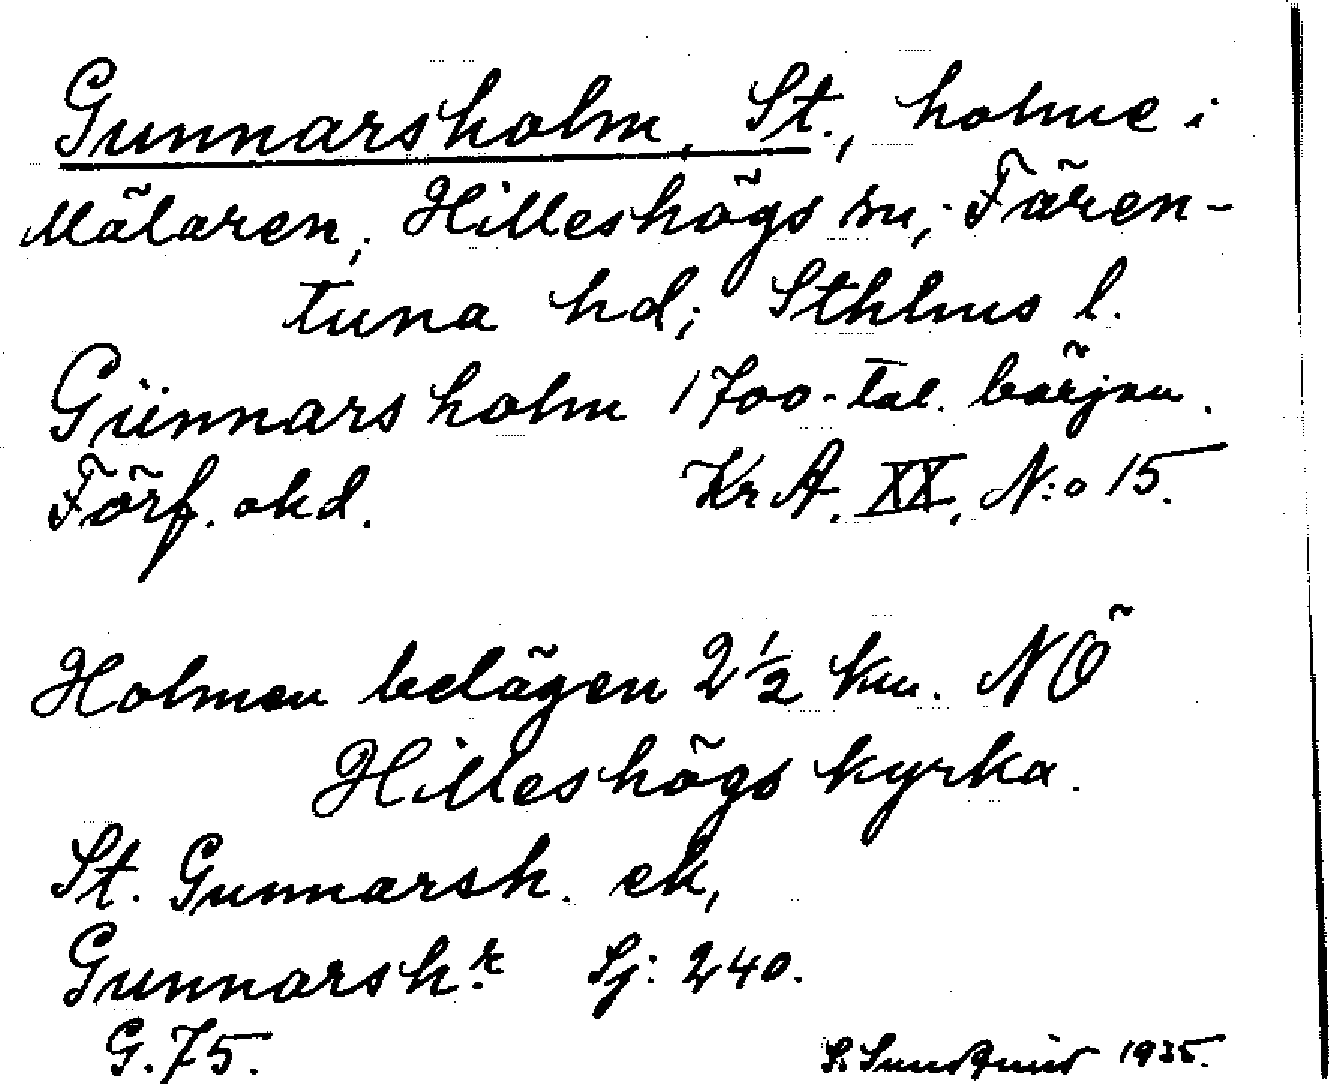 Gunnarsholm, St., holme i
Mälaren, Hilleshögs sn, Fären-
tuna hd; Sthlms l.
Günnarsholm 1700-tal. början.
Förf. okd. Kr A. XX, N:o 15.
Holmen belägen 2 ½ km. NÖ
Hilleshögs kyrka.
St. Gunnarsh. ek,
Gunnarsh:r Sj: 240.
G. 75.
S. 1935.